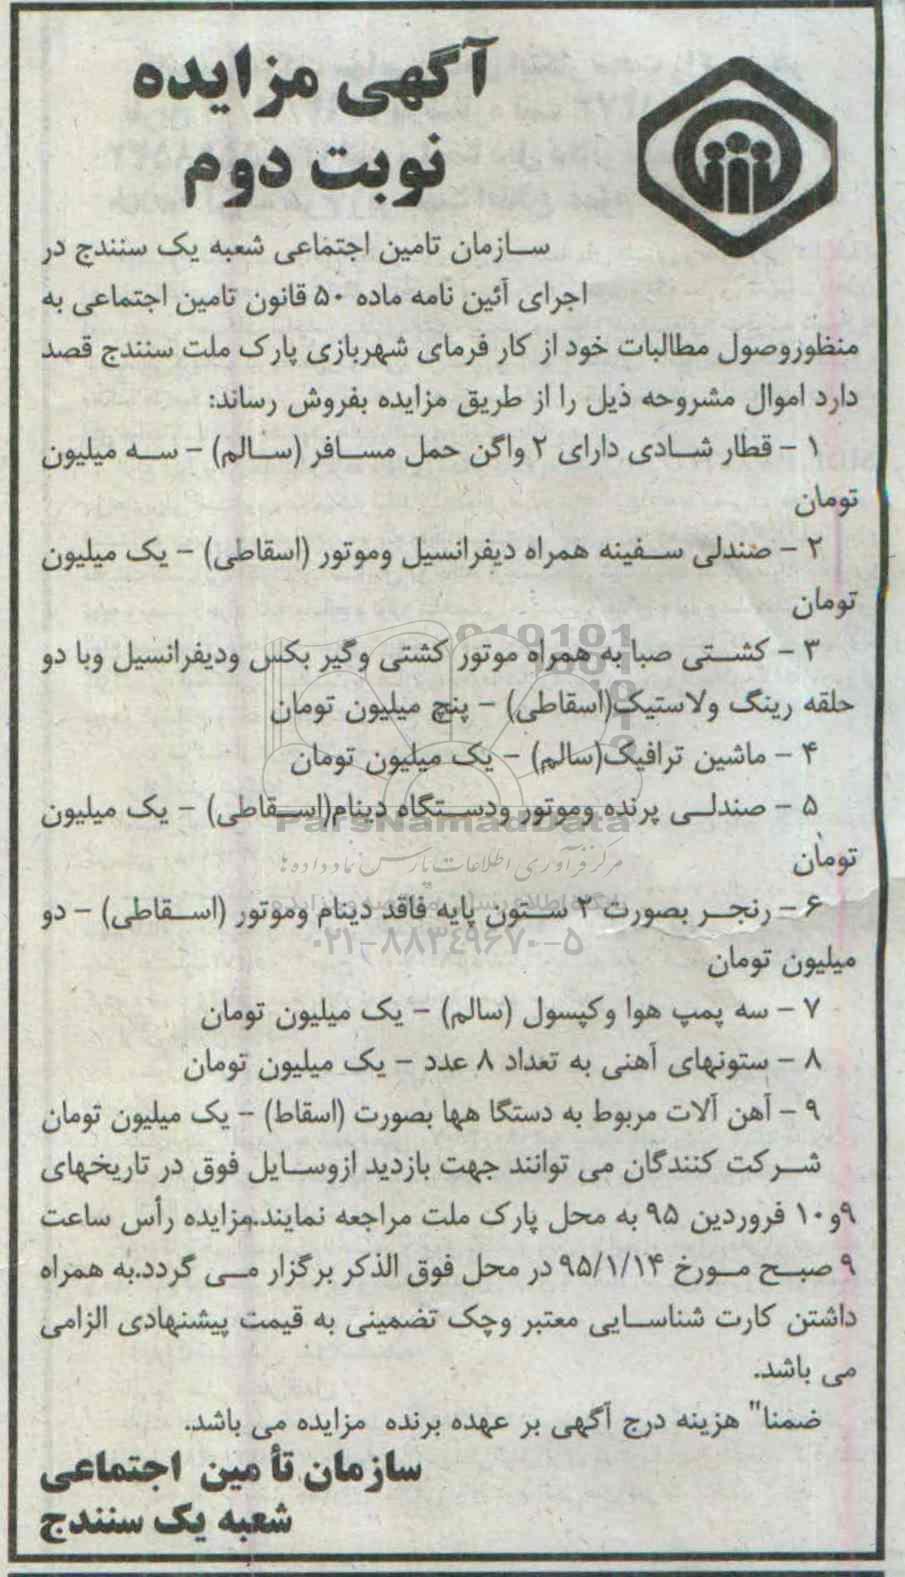 آگهی مزایده
نوبت دوم
سازمان تامین اجتماعی شعبه یک سنندج در
اجرای آئین نامه ماده ۵۰ قانون تامین اجتماعی به
منظوروصول مطالبات خود از کار فرمای شهربازی پارک ملت سنندج قصد
دارد اموال مشروحه ذیل را از طریق مزایده بفروش رساند:
۱ - قطار شادی دارای ۲ واگن حمل مسافر (سالم) - سه میلیون
تومان
۲ - صندلی سفینه همراه دیفرانسیل وموتور (اسقاطی) - یک میلیون
تومان
۳ - کشتی صبا به همراه موتور کشتی وگیر بکس ودیفرانسیل وبا دو
حلقه رینگ ولاستیک(اسقاطی) - پنج میلیون تومان
۴ - ماشین ترافیک(سالم) - یک میلیون تومان
۵ - صندلی پرنده وموتور ودستگاه دینام(اسقاطی) - یک میلیون
تومان
ParsNamadData
مرکز فرآوری اطلاعات پارس نماد داده ها
۶ - رنجر بصورت ۲ ستون پایه فاقد دینام وموتور (اسقاطی) - دو
۰۲۱-۸۸۳۴۹۶۷۰-۵
میلیون تومان
۷ - سه پمپ هوا وکپسول (سالم) - یک میلیون تومان
۸ - ستونهای آهنی به تعداد ۸ عدد - یک میلیون تومان
۹ - آهن آلات مربوط به دستگا هها بصورت (اسقاط) - یک میلیون تومان
شرکت کنندگان می توانند جهت بازدید ازوسایل فوق در تاریخهای
۹و۱۰ فروردین ۹۵ به محل پارک ملت مراجعه نمایند.مزایده رأس ساعت
۹ صبح مورخ ۹۵/۱/۱۴ در محل فوق الذکر برگزار می گردد.به همراه
داشتن کارت شناسایی معتبر وچک تضمینی به قیمت پیشنهادی الزامی
می باشد.
ضمنا" هزینه درج آگهی بر عهده برنده مزایده می باشد.
سازمان تأمین اجتماعی
شعبه یک سنندج